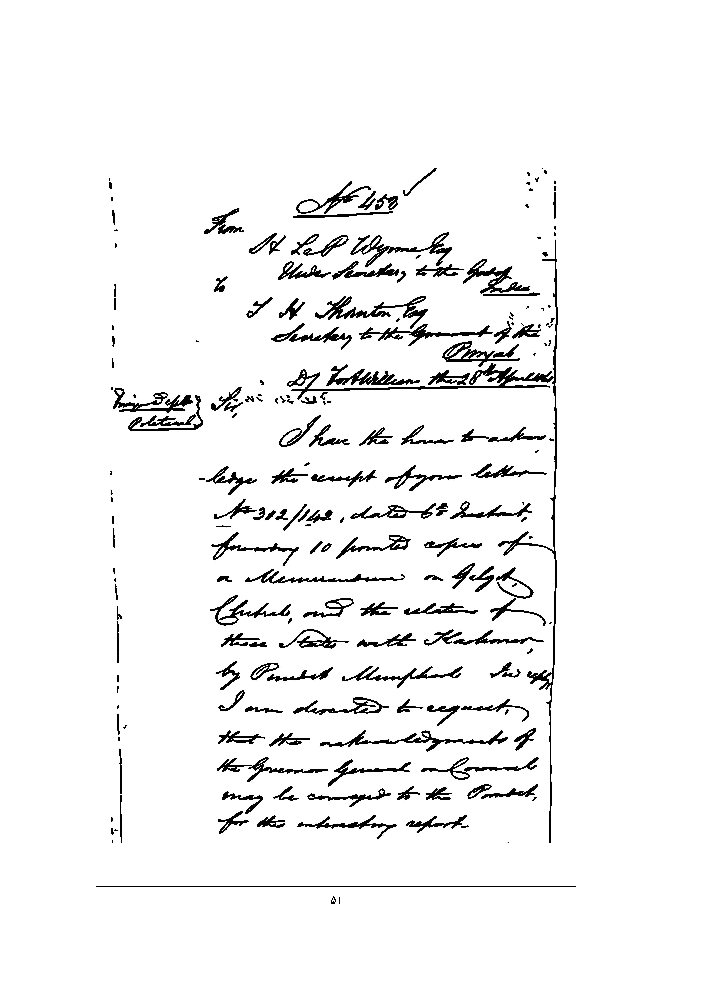 No 458
From
H Le P Wynne, Esq
Under Secretary to the Govt of
India
to
T H Thornton, Esq
Secretary to the Government of the
Punjab
Dd Fort William, the 28th April
Foreign Dept
Political
Sir,
I have the honor to acknow-
-ledge the receipt of your letter
No 302/142, dated 6th Instant,
forwarding 10 printed copies of
a Memorandum on Gilgit,
Chitral, and the relations of
these States with Kashmer,
by Pundit Munphool. In reply
I am directed to request,
that the acknowledgments of
the Governor General in Council
may be conveyed to the Pundit,
for this interesting report.
۵۱